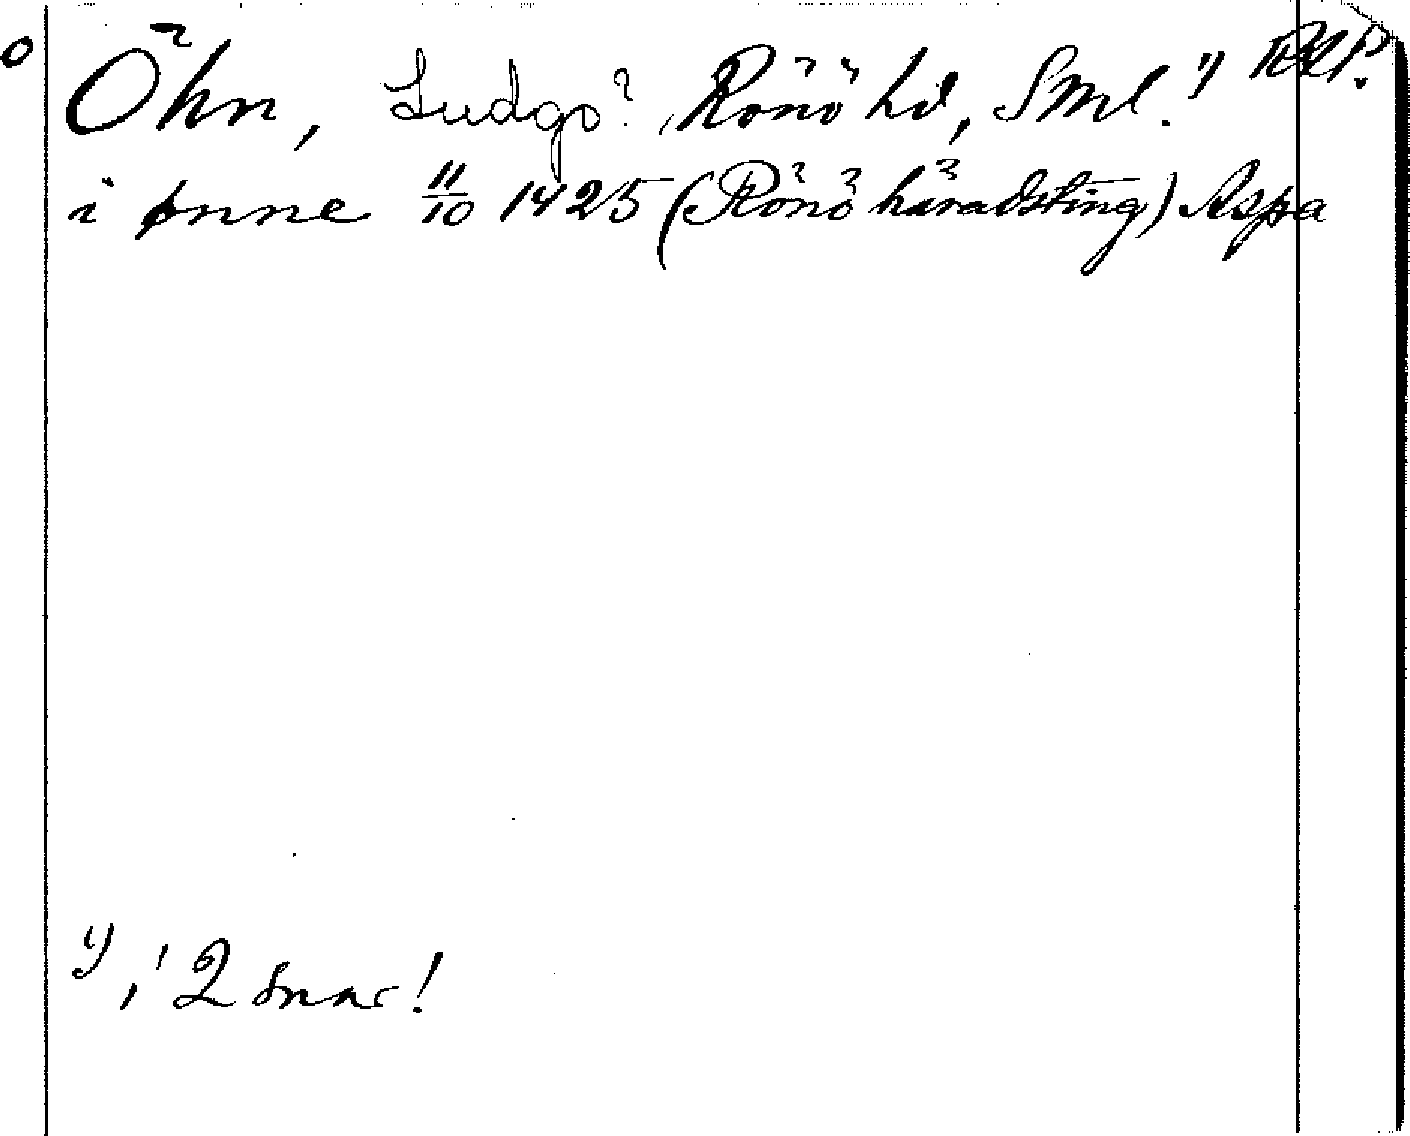 Öhn, Ludgo? Rönö hd, Sml. 1) RAP.
i ønne 11/10 1425 (Rönö häradsting) Aspa
1), 2 Snar!